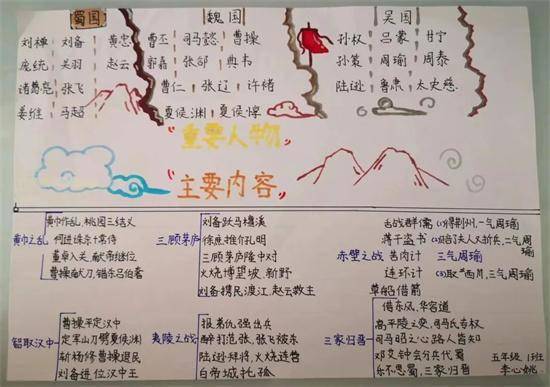 蜀国
刘禅 刘备 黄忠
庞统 关羽 赵云
诸葛亮 张飞
姜维 马超
魏国
曹丕 司马懿 曹操
郭嘉 张郃 典韦
曹仁 张辽 许褚
夏侯渊 夏侯惇
吴国
孙权 吕蒙 甘宁
孙策 周瑜 周泰
陆逊 鲁肃 太史慈.
"重要人物"
"主要内容"
黄巾之乱
黄巾作乱,桃园三结义
何进诛杀十常侍
董卓入关,献帝继位
曹操献刀,错杀吕伯奢
三顾茅庐
刘备跃马檀溪
徐庶推介孔明
三顾茅庐隆中对
火烧博望坡.新野
刘备携民渡江,赵云救主
赤壁之战
舌战群儒
蒋干盗书
苦肉计
连环计
草船借箭
借东风.华容道
(1)得荆州,一气周瑜
(2)陪了夫人又折兵,二气周瑜
(3)取"西川,三气周瑜
智取汉中
曹操平定汉中
定军山刀劈夏侯渊
斩杨修曹操退民
刘备进位汉中王
夷陵之战
报弟仇强出兵
醉打范张,张飞被东
陆逊拜将,火烧连营
白帝城托孤
三家归晋
高平陵之史,司马氏专权
司马昭之心路人皆知
邓艾钟会分兵代蜀
乐不思蜀,三家归晋
五年级.13班
李心姚.